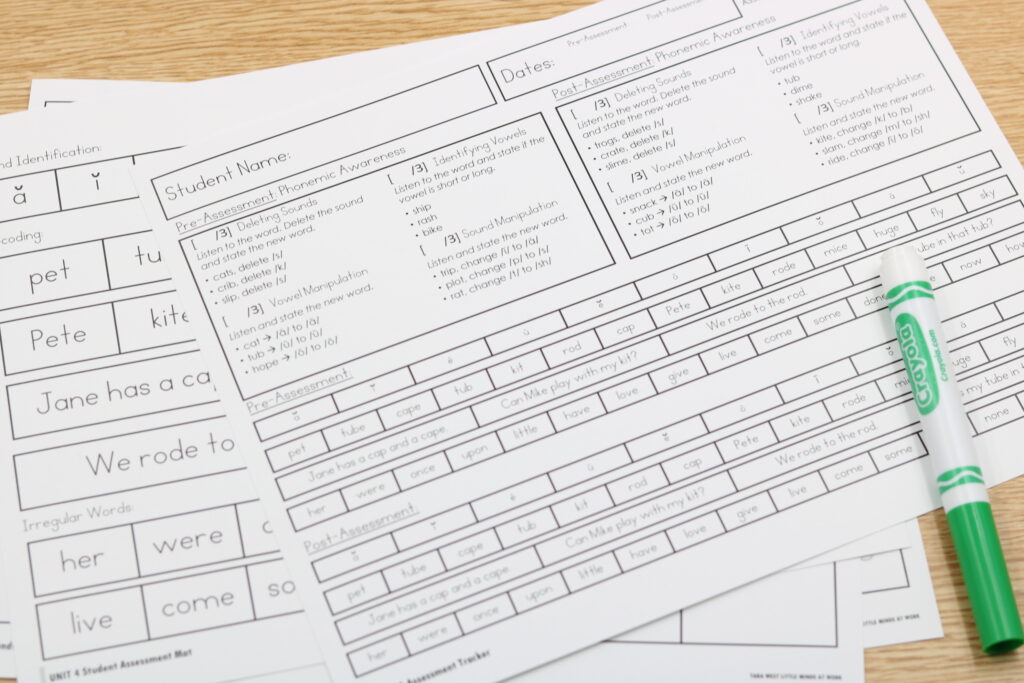 Pre-Assessment:
Post-Assessment
Student Name:
Dates:
Pre-Assessment: Phonemic Awareness
[ /3] Deleting Sounds
Listen to the word. Delete the sound
and state the new word.
• cats, delete /s/
• crib, delete /k/
• slip, delete /s/
[ /3] Vowel Manipulation
Listen and state the new word.
• cat → /ō/ to /ŏ/
• tub → /ŏ/ to /ŏ/
• hope → /ō/ to /ŏ/
[ /3] Identifying Vowels
Listen to the word and state if the
vowel is short or long.
• ship
• rash
• bike
[ /3] Sound Manipulation
Listen and state the new word.
• trip, change /i/ to /ă/
• plot, change /p/ to /s/
• rat, change /t/ to /sh/
Post-Assessment: Phonemic Awareness
[ /3] Deleting Sounds
Listen to the word. Delete the sound
and state the new word.
• frogs, delete /s/
• crate, delete /k/
• slime, delete /s/
[ /3] Vowel Manipulation
Listen and state the new word.
• snack →
• cub →
• tat →
[ /3] Identifying Vowels
Listen to the word and state if the
vowel is short or long.
• tub
• dime
• shake
[ /3] Sound Manipulation
Listen and state the new word.
• kite, change /k/ to /b/
• slam, change /m/ to /sh/
• ride, change /ī/ to /ō/
Pre-Assessment:
pet tube cape tub kit rod cap Pete kite rode mice huge fly sky
Jane has a cap and a cape. Can Mike play with my kit? We rode to the rod. tube in that tub?
her were once upon little have love give live come some done now how
Post-Assessment:
pet tube cape tub kit rod cap Pete kite rode huge fly
Jane has a cap and a cape. Can Mike play with my kit? We rode to the rod. my tube in
her were once upon little have love give live come some none
Assessment Tracker
nd Identification:
ă ĭ
coding:
pet tu
Pete kite
Jane has a cap
We rode to
Irregular Words:
her were
live come so
UNIT 4 Student Assessment Mat
TARA WEST LITTLE MINDS AT WORK
LITTLE MINDS AT WORK
crayola
Crayola.com